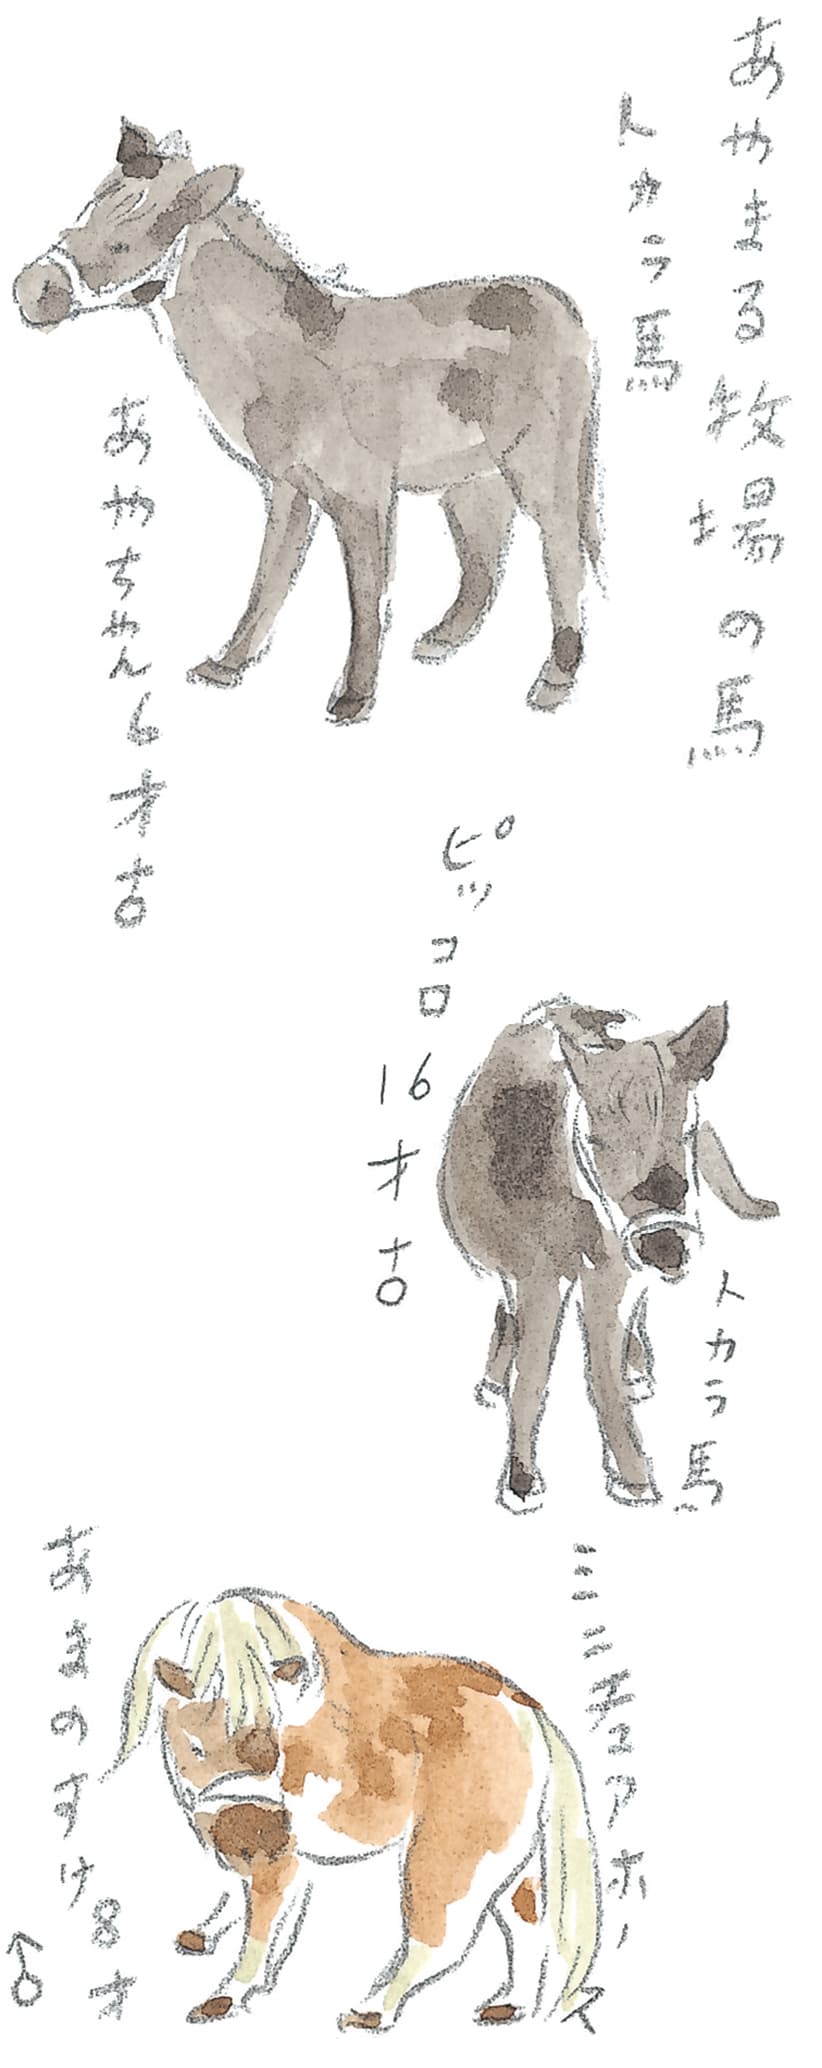 あやまる牧場の馬
トカラ馬
あやちゃん6才♀
ピッコロ
16才♀
トカラ馬
ミニチュアホース
あまのすけ
8才
♂